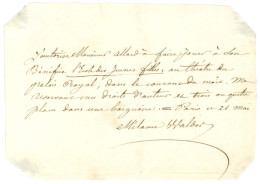 J'autorise Monsieur allard à faire jouer à son
Bénéfice l'École des Jeunes filles, au théâtre du
palais Royal, dans le courant du mois, me
reservant mes droits d'auteur et
plein dans une = Paris ce 21 mai
Mélanie Waldor